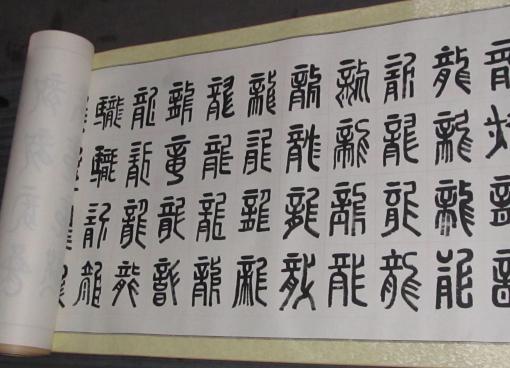 龍龍龍龍
龍龍龍龍
龍龍龍龍
龍龍龍龍
龍龍龍龍
龍龍龍龍
龍龍龍龍
龍龍龍龍
龍龍